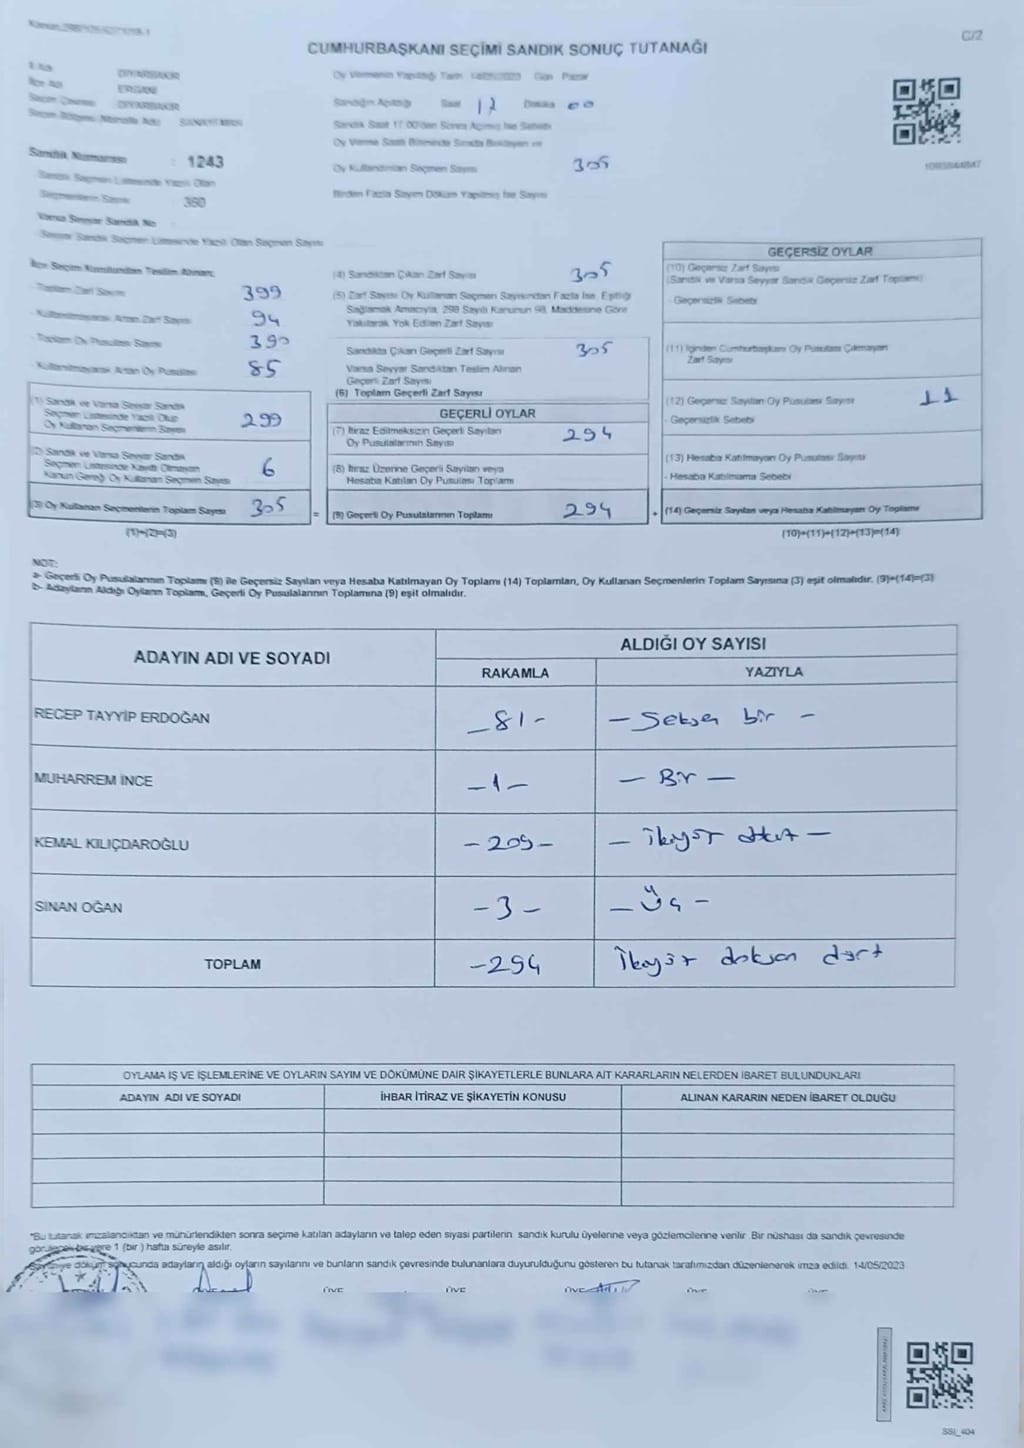 CUMHURBAŞKANI SEÇİMİ SANDIK SONUÇ TUTANAĞI
C/2
İlçe Adı ERGANİ
Seçim Çevresi DİYARBAKIR
Oy Vermenin Yapıldığı Tarih 14/05/2023 Gün Pazar
Sandığın Açıldığı Saat 17 Dakika 00
Sandık Saat 17.00'den Sonra Açılmış İse Sebebi
Oy Verme Saati Bitiminde Sırada Bekleyen ve
Oy Kullandırılan Seçmen Sayısı 305
Birden Fazla Sayım Döküm Yapılmış İse Sayısı
Sandık Numarası : 1243
Sandık Seçmen Listesinde Yazılı Olan
Seçmenlerin Sayısı 360
Varsa Seyyar Sandık No
Seyyar Sandık Seçmen Listesinde Yazılı Olan Seçmen Sayısı
İlçe Seçim Kurulundan Teslim Alınan;
- Toplam Zarf Sayısı 399
- Kullanılmayarak Artan Zarf Sayısı 94
- Toplam Oy Pusulası Sayısı 390
- Kullanılmayarak Artan Oy Pusulası 85
(1) Sandık ve Varsa Seyyar Sandık
Seçmen Listesinde Yazılı Olup
Oy Kullanan Seçmenlerin Sayısı 299
(2) Sandık ve Varsa Seyyar Sandık
Seçmen Listesinde Kayıtlı Olmayan
Kanun Gereği Oy Kullanan Seçmen Sayısı 6
(3) Oy Kullanan Seçmenlerin Toplam Sayısı 305
(1)+(2)=(3)
(4) Sandıktan Çıkan Zarf Sayısı 305
(5) Zarf Sayısı Oy Kullanan Seçmen Sayısından Fazla İse, Eşitliği
Sağlamak Amacıyla, 298 Sayılı Kanunun 98. Maddesine Göre
Yakılarak Yok Edilen Zarf Sayısı
Sandıkta Çıkan Geçerli Zarf Sayısı 305
Varsa Seyyar Sandıktan Teslim Alınan
Geçerli Zarf Sayısı
(6) Toplam Geçerli Zarf Sayısı
GEÇERLİ OYLAR
(7) İtiraz Edilmeksizin Geçerli Sayılan
Oy Pusulalarının Sayısı 294
(8) İtiraz Üzerine Geçerli Sayılan veya
Hesaba Katılan Oy Pusulası Toplamı
= (9) Geçerli Oy Pusulalarının Toplamı 294
GEÇERSİZ OYLAR
(10) Geçersiz Zarf Sayısı
(Sandık ve Varsa Seyyar Sandık Geçersiz Zarf Toplamı)
- Geçersizlik Sebebi
(11) İçinden Cumhurbaşkanı Oy Pusulası Çıkmayan
Zarf Sayısı
(12) Geçersiz Sayılan Oy Pusulası Sayısı 11
- Geçersizlik Sebebi
(13) Hesaba Katılmayan Oy Pusulası Sayısı
- Hesaba Katılmama Sebebi
+ (14) Geçersiz Sayılan veya Hesaba Katılmayan Oy Toplamı
(10)+(11)+(12)+(13)=(14)
NOT:
a- Geçerli Oy Pusulalarının Toplamı (9) ile Geçersiz Sayılan veya Hesaba Katılmayan Oy Toplamı (14) Toplamları, Oy Kullanan Seçmenlerin Toplam Sayısına (3) eşit olmalıdır. (9)+(14)=(3)
b- Adayların Aldığı Oyların Toplamı, Geçerli Oy Pusulalarının Toplamına (9) eşit olmalıdır.
ADAYIN ADI VE SOYADI ALDIĞI OY SAYISI
RAKAMLA YAZIYLA
RECEP TAYYİP ERDOĞAN - 81 - - Seksen bir -
MUHARREM İNCE - 1 - - Bir -
KEMAL KILIÇDAROĞLU - 209 - - İkiyüz dokuz -
SİNAN OĞAN - 3 - - Üç -
TOPLAM - 294 İkiyüz doksan dört
OYLAMA İŞ VE İŞLEMLERİNE VE OYLARIN SAYIM VE DÖKÜMÜNE DAİR ŞİKAYETLERLE BUNLARA AİT KARARLARIN NELERDEN İBARET BULUNDUKLARI
ADAYIN ADI VE SOYADI İHBAR İTİRAZ VE ŞİKAYETİN KONUSU ALINAN KARARIN NEDEN İBARET OLDUĞU
*Bu tutanak imzalandıktan ve mühürlendikten sonra seçime katılan adayların ve talep eden siyasi partilerin sandık kurulu üyelerine veya gözlemcilerine verilir. Bir nüshası da sandık çevresinde
görülecek bir yere 1 (bir) hafta süreyle asılır.
Sayım ve döküm sonucunda adayların aldığı oyların sayılarını ve bunların sandık çevresinde bulunanlara duyurulduğunu gösteren bu tutanak tarafımızdan düzenlenerek imza edildi. 14/05/2023
ÜYE ÜYE ÜYE ÜYE ÜYE
SSI_404